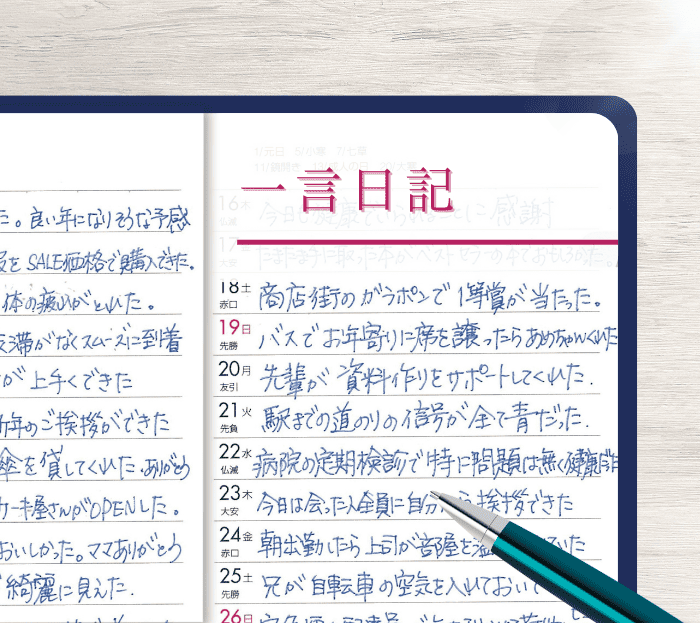 た。良い年になりそうな予感
をSALE価格で購入できた。
体の疲れがとれた。
滞がなくスムーズに到着
が上手くできた
年のご挨拶ができた
傘を貸してくれた。ありがとう
ケーキ屋さんがOPENした。
おいしかった。ママありがとう
綺麗に見えた.
1/元日
一言日記
16 木 仏滅 今日も健康でいられることに感謝
17
18 土 赤口 商店街のガラポンで1等賞が当たった。
19 日 先勝 バスでお年寄りに席を譲ったらあめちゃんくれた
20 月 友引 先輩が資料作りをサポートしてくれた.
21 火 先負 駅までの道のりの信号が全て青だった.
22 水 仏滅 病院の定期検診で特に問題は無く健康
23 木 大安 今日は会った人全員に自分から挨拶できた
24 金 赤口 朝出勤したら上司が部屋を
25 土 先勝 兄が自転車の空気を入れておいて
26 日